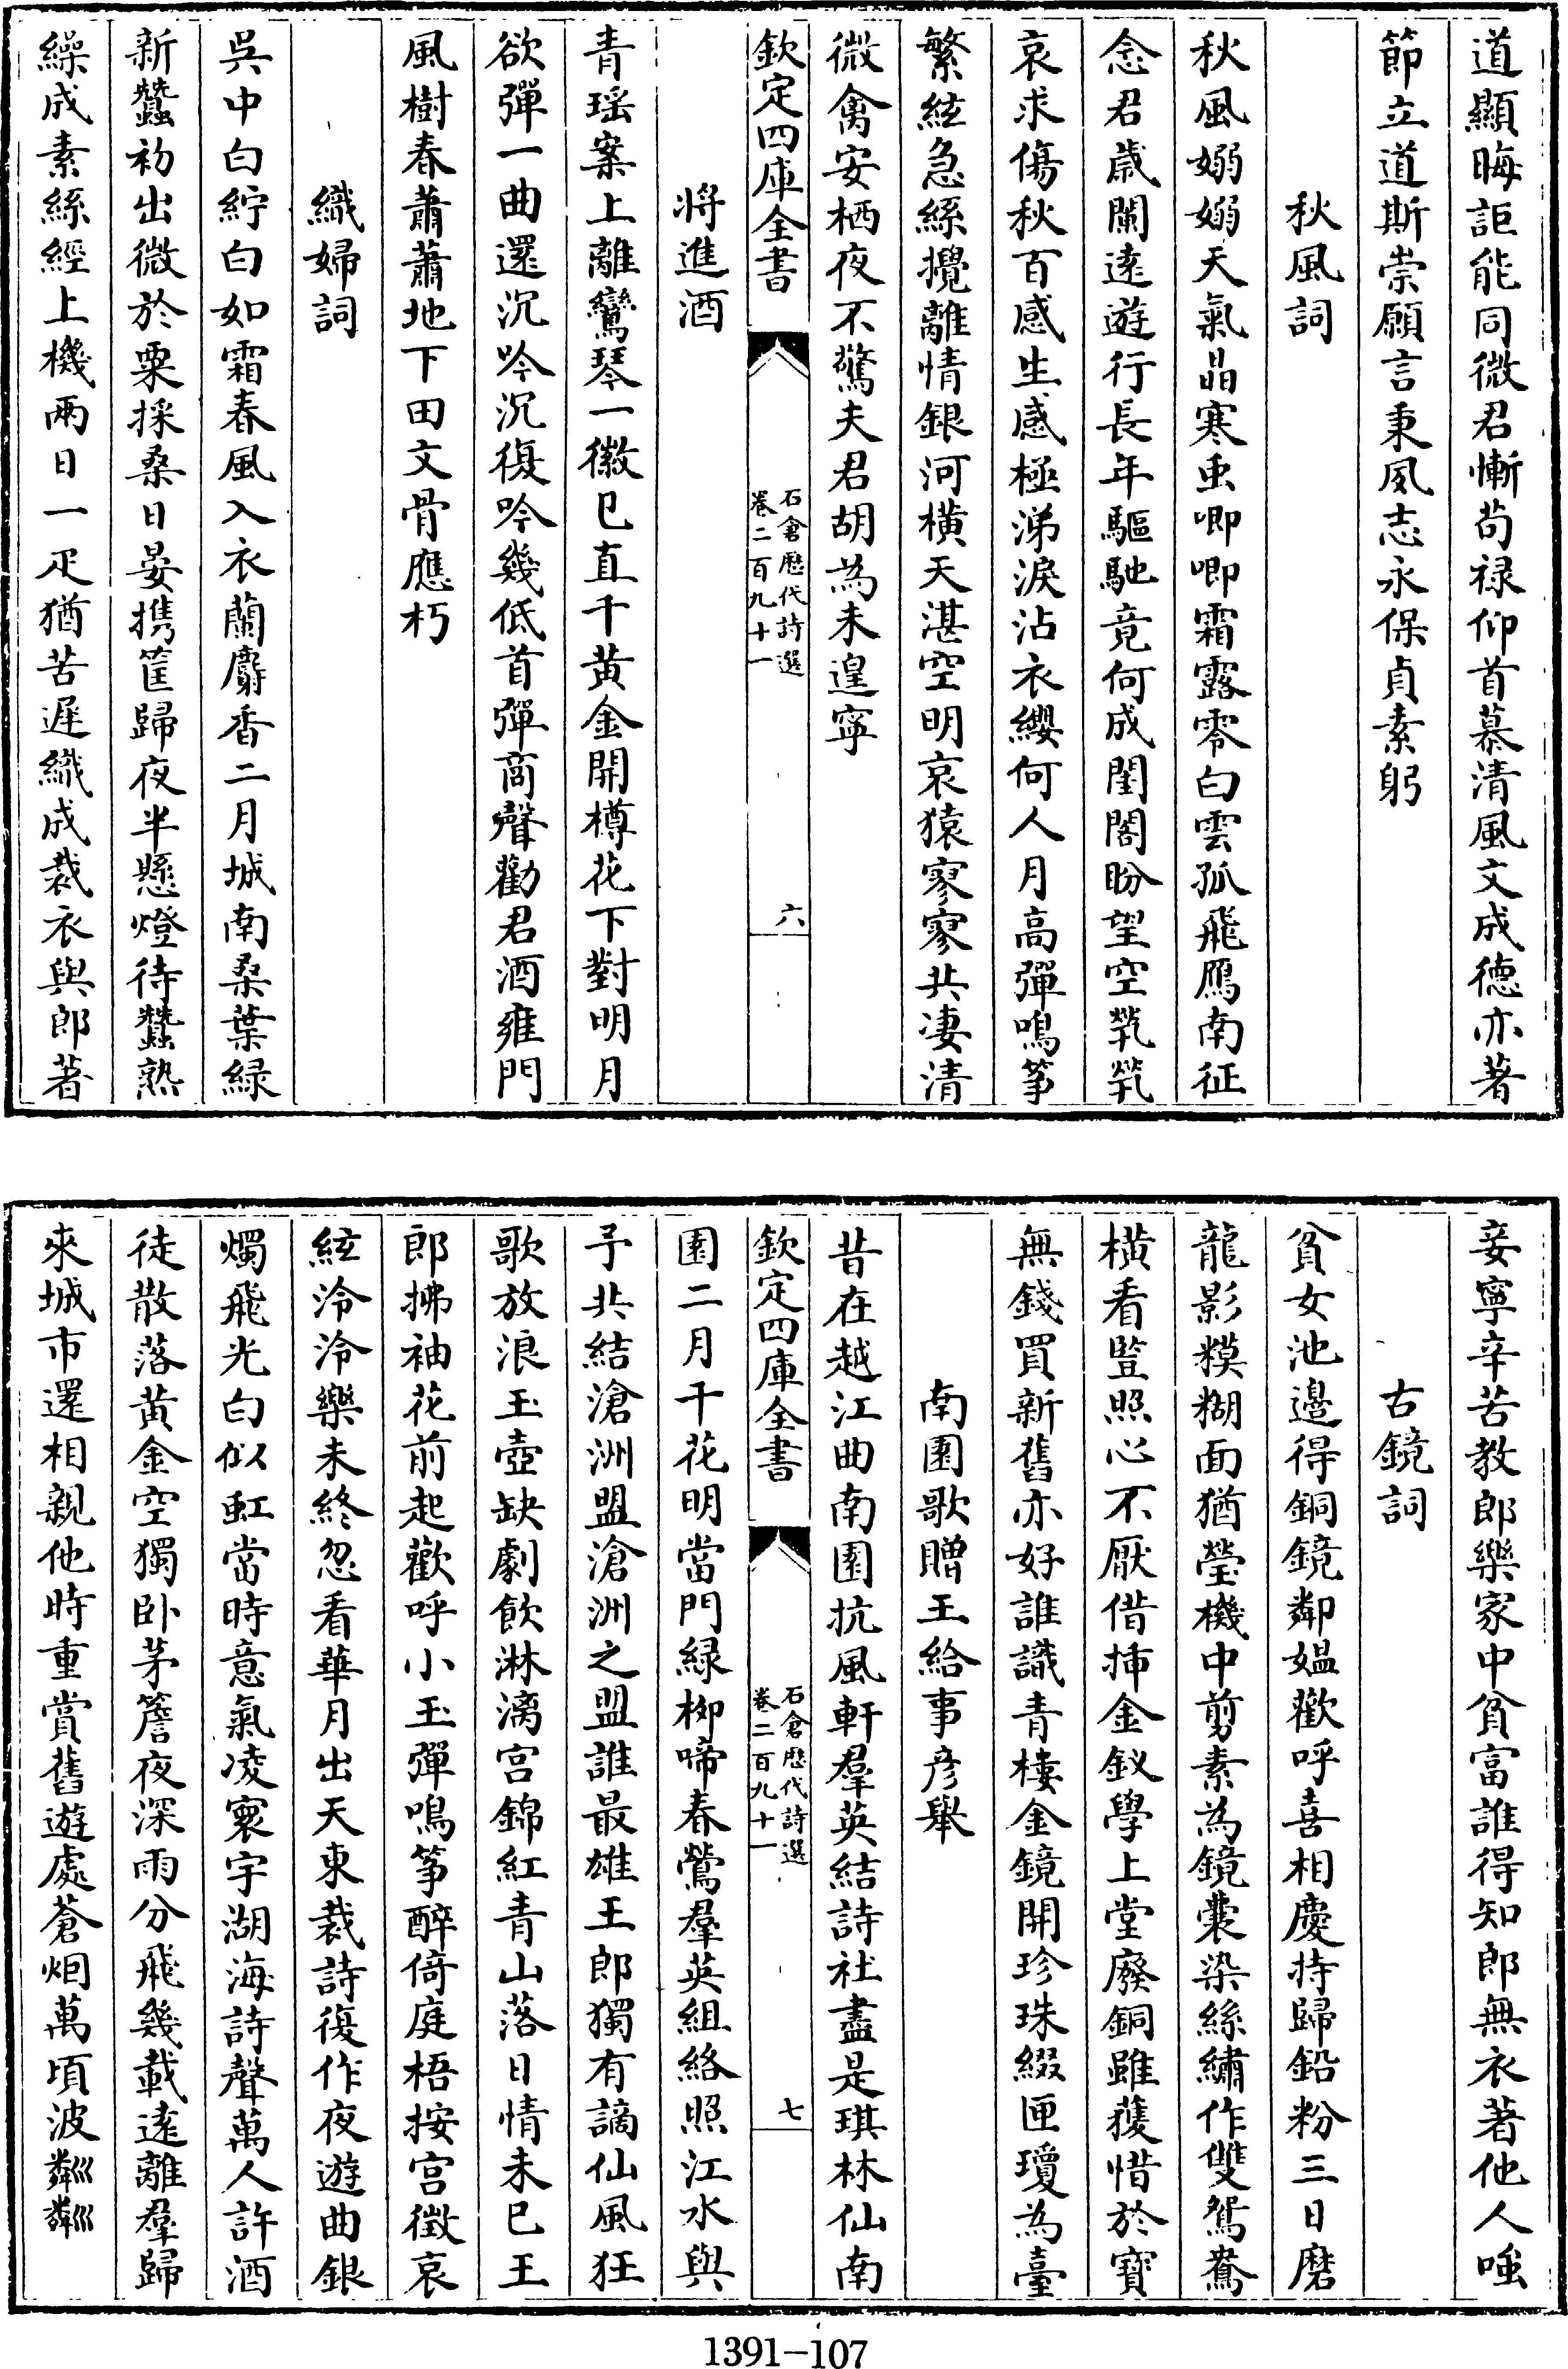 道顯晦詎能同微君慚茍祿仰首慕清風文成德亦著
節立道斯崇願言秉夙志永保貞素躬
秋風詞
秋風嫋嫋天氣晶寒虫唧唧霜露零白雲孤飛鴈南征
念君歲闌遠遊行長年驅馳竟何成閨閤盼望空煢煢
哀求傷秋百感生感極涕淚沾衣纓何人月高彈鳴筝
繁絃急絲攪離情銀河橫天湛空明哀猿寥寥共淒清
微禽安栖夜不驚夫君胡為未遑寧
欽定四庫全書
石倉歷代詩選
卷二百九十一
六
將進酒
青瑶案上離鸞琴一徽已直千黄金開樽花下對明月
欲彈一曲還沉吟沉復吟幾低首彈商聲勸君酒雍門
風樹春蕭蕭地下田文骨應朽
織婦詞
吳中白紵白如霜春風入衣蘭麝香二月城南桑葉緑
新蠶初出微於粟採桑日晏携筐歸夜半懸燈待蠶熟
繰成素絲經上機兩日一疋猶苦遲織成裁衣與郎著
妾寧辛苦教郎樂家中貧富誰得知郎無衣著他人嗤
古鏡詞
貧女池邊得銅鏡鄰媪歡呼喜相慶持歸鉛粉三日磨
龍影糢糊面猶瑩機中剪素為鏡囊染絲繡作雙鴛鴦
橫看豎照心不厭借揷金釵學上堂廢銅雖獲惜於寶
無錢買新舊亦好誰識青樓金鏡開珍珠綴匣瓊為臺
南園歌贈王給事彦舉
昔在越江曲南園抗風軒羣英結詩社盡是琪林仙南
欽定四庫全書
石倉歷代詩選
卷二百九十一
七
園二月千花明當門緑柳啼春鶯羣英組絡照江水與
予共結滄洲盟滄洲之盟誰最雄王郎獨有謫仙風狂
歌放浪玉壺缺劇飲淋漓宫錦紅青山落日情未已王
郎拂袖花前起歡呼小玉彈鳴筝醉倚庭梧按宫徵哀
絃泠泠樂未終忽看華月出天東裁詩復作夜遊曲銀
燭飛光白似虹當時意氣凌寰宇湖海詩聲萬人許酒
徒散落黄金空獨卧茅簷夜深雨分飛幾載遠離羣歸
來城市還相親他時重賞舊遊處蒼烟萬頃波粼粼
1391-107